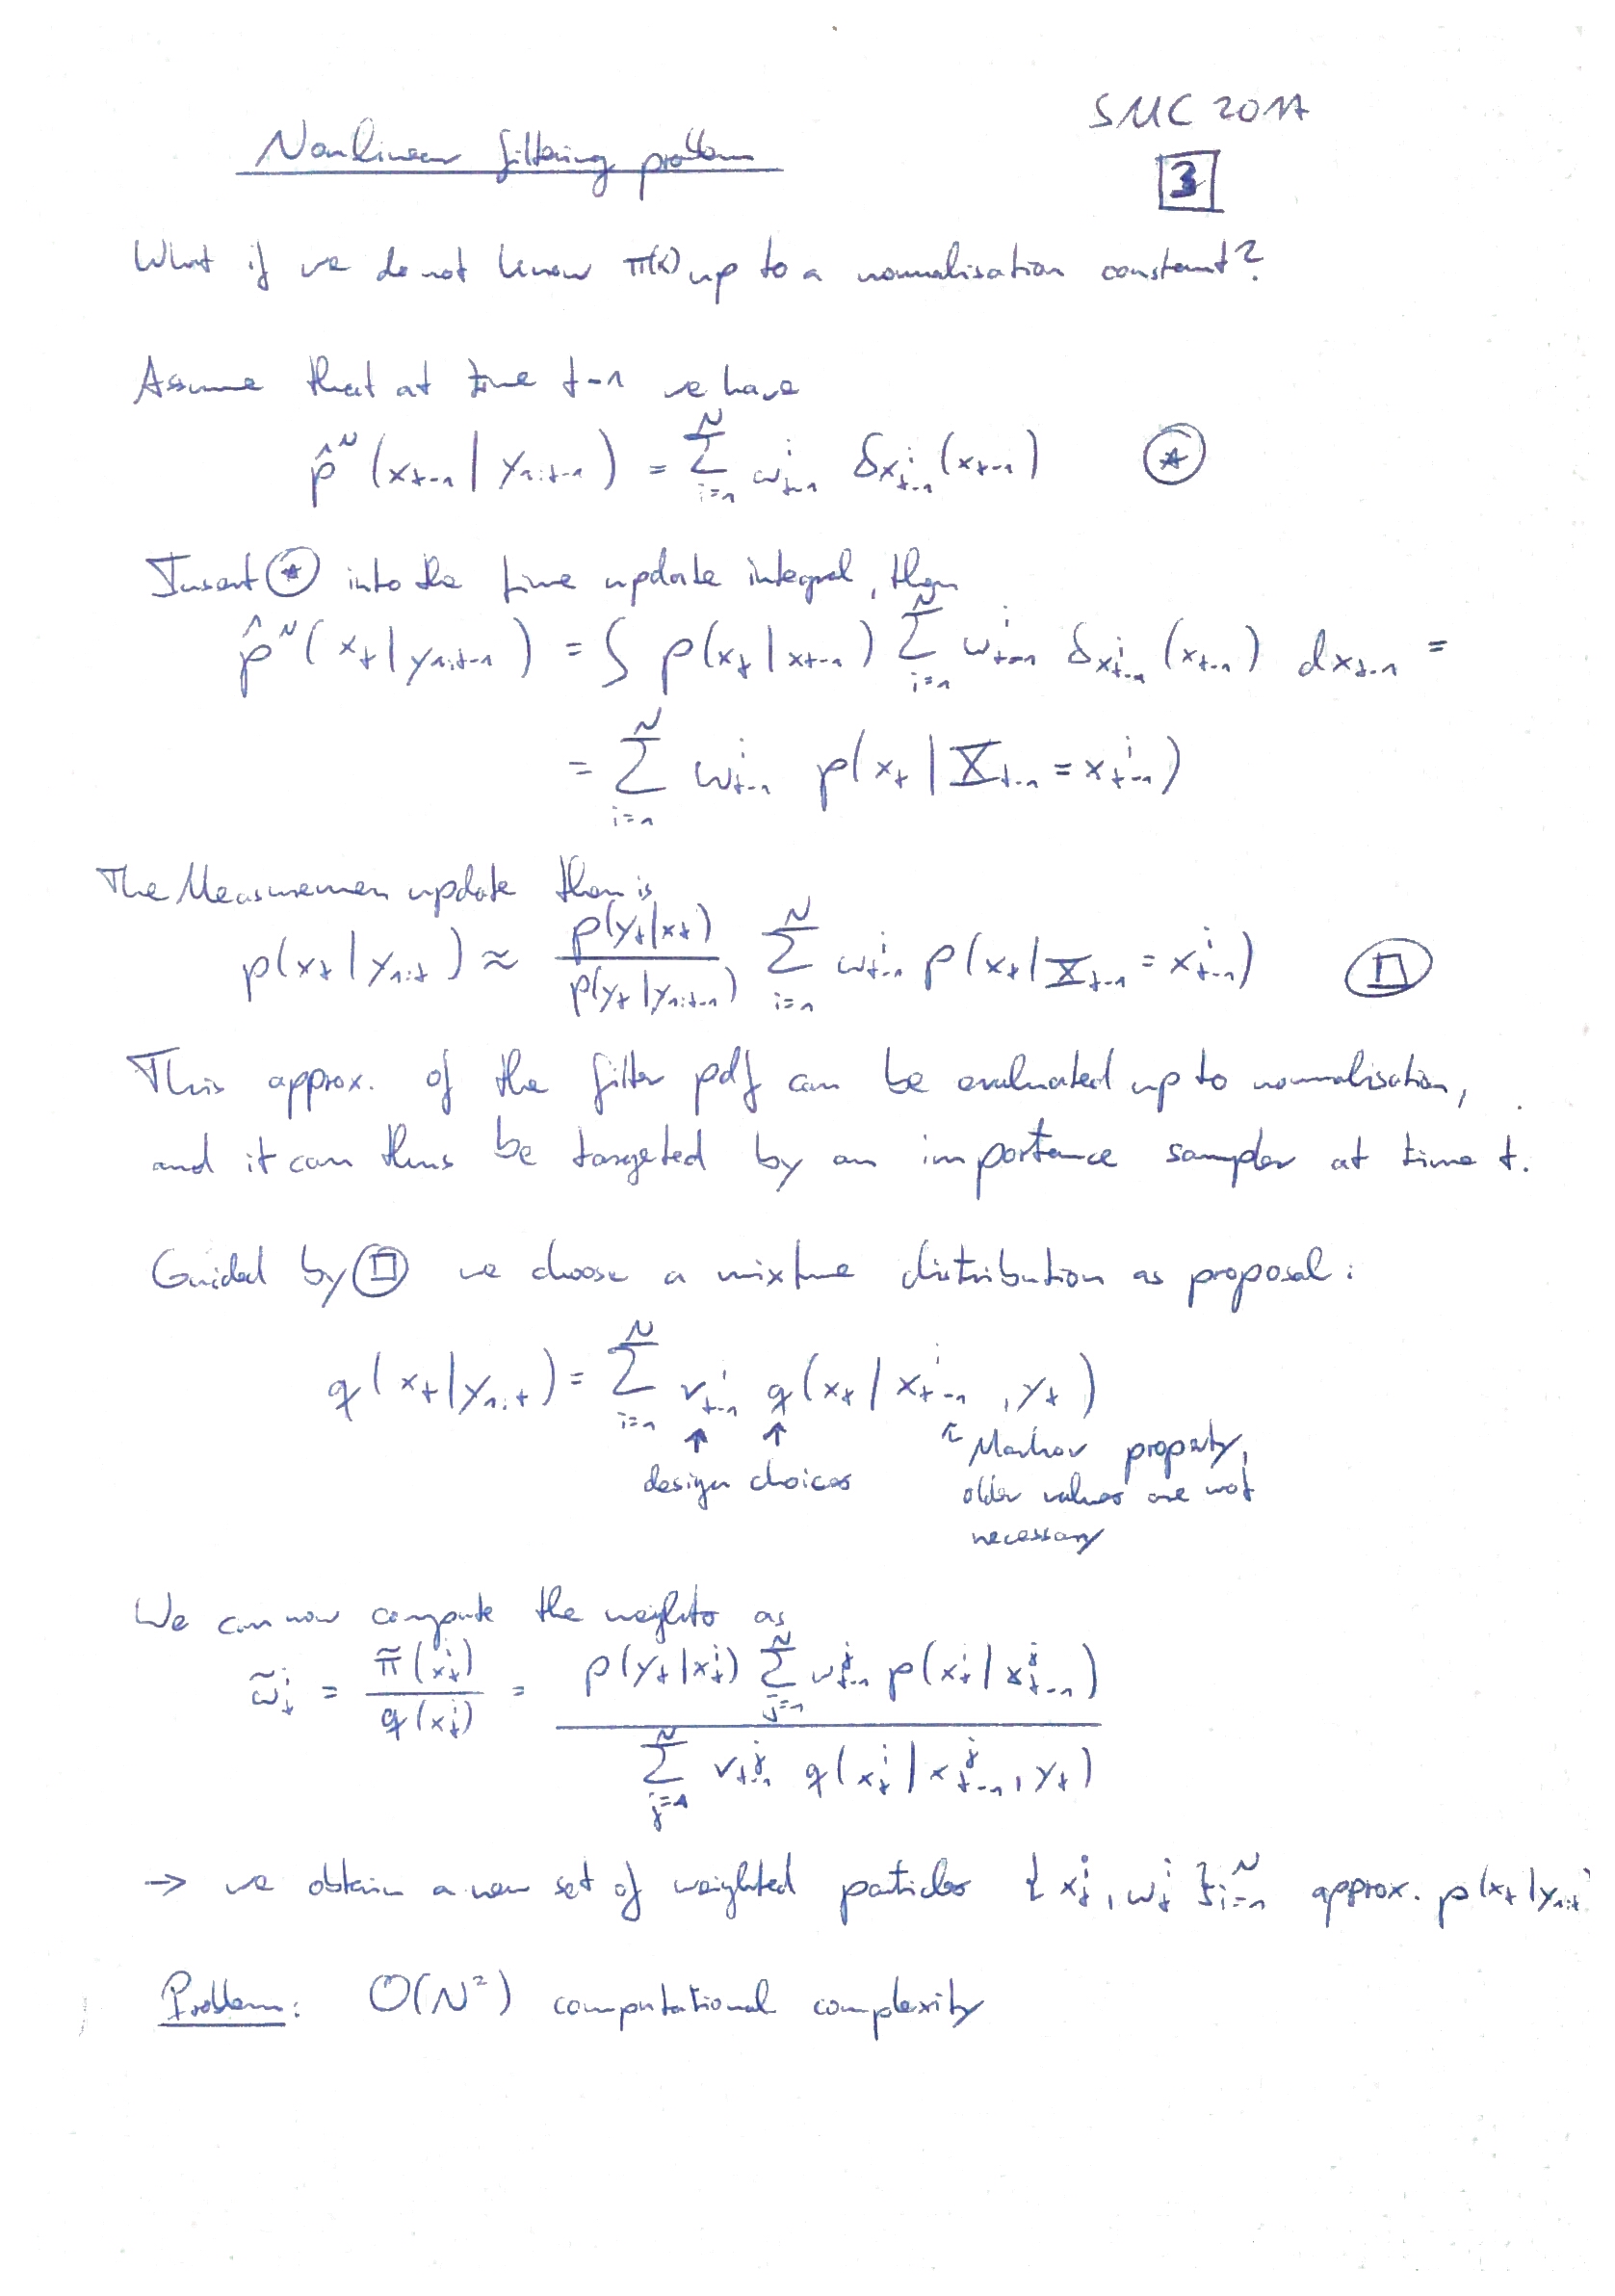 SMC 2017
Nonlinear filtering problem
3
What if we do not know π(x) up to a normalisation constant?
Assume that at time t-1 we have
p̂^N(x_{t-1} | y_{1:t-1}) = Σ_{i=1}^N w_{t-1}^i δ_{x_{t-1}^i}(x_{t-1}) ☆
Insert ☆ into the time update integral, then
p̂^N(x_t | y_{1:t-1}) = ∫ p(x_t | x_{t-1}) Σ_{i=1}^N w_{t-1}^i δ_{x_{t-1}^i}(x_{t-1}) dx_{t-1} =
= Σ_{i=1}^N w_{t-1}^i p(x_t | X_{t-1} = x_{t-1}^i)
The Measuremen update then is
p(x_t | y_{1:t}) ≈ p(y_t|x_t) / p(y_t | y_{1:t-1}) Σ_{i=1}^N w_{t-1}^i p(x_t | X_{t-1} = x_{t-1}^i) □
This approx. of the filter pdf can be evaluated up to normalisation,
and it can thus be targeted by an importance sampler at time t.
Guided by □ we choose a mixture distribution as proposal:
q(x_t | y_{1:t}) = Σ_{i=1}^N v_{t-1}^i q(x_t | x_{t-1}^i, y_t)
↑ ↑ ↖ Markov property,
design choices older values are not
necessary
We can now compute the weights as
w̃_t^i = π̃(x_t^i) / q(x_t^i) = p(y_t|x_t^i) Σ_{j=1}^N w_{t-1}^j p(x_t^i | x_{t-1}^j) / Σ_{j=1}^N v_{t-1}^j q(x_t^i | x_{t-1}^j, y_t)
→ we obtain a new set of weighted particles {x_t^i, w_t^i}_{i=1}^N approx. p(x_t | y_{1:t})
Problem: O(N²) computational complexity